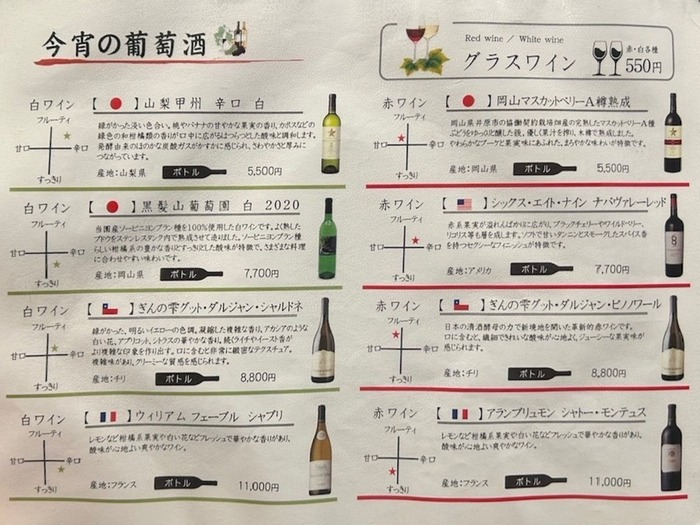 今宵の葡萄酒
Red wine / White wine
グラスワイン
赤・白各種
550円
白ワイン
【 】山梨甲州 辛口 白
フルーティ
甘口
辛口
すっきり
緑がかった淡い色合い。桃やバナナの甘やかな果実の香り、カボスなどの
緑色の和柑橘類の香りが口中に広がるはつらつとした酸味と調和します。
発酵由来のほのかな炭酸ガスがかすかに感じられ、さわやかさと厚みに
つながっています。
産地：山梨県
ボトル
5,500円
白ワイン
【 】黒髪山葡萄園 白 2020
フルーティ
甘口
辛口
すっきり
当園産ソービニヨンブラン種を100%使用した白ワインです。よく熟した
ブドウをステンレスタンク内で熟成させて造りました。ソービニヨンブラン種
らしい柑橘系の豊かな香りとすっきりとした酸味が特徴で、さまざまな料理
に合わせやすい味わいです。
産地：岡山県
ボトル
7,700円
白ワイン
【 】ぎんの雫グット・ダルジャン・シャルドネ
フルーティ
甘口
辛口
すっきり
緑がかった、明るいイエローの色調。凝縮した複雑な香り、アカシアのような
白い花、アプリコット、シトラスの華やかな香り、続くライチやイースト香が
より複雑な印象を作り出す。口に含むと非常に緻密なテクスチュア。
複雑味があり、クリーミーな質感を感じられます。
産地：チリ
ボトル
8,800円
白ワイン
【 】ウィリアム フェーブル シャブリ
フルーティ
甘口
辛口
すっきり
レモンなど柑橘系果実や白い花などフレッシュで華やかな香りがあり、
酸味が心地よい爽やかなワイン。
産地：フランス
ボトル
11,000円
赤ワイン
【 】岡山マスカットベリーA樽熟成
フルーティ
甘口
辛口
すっきり
岡山県井原市の協働契約栽培畑産の完熟したマスカットベリーA種
ぶどうをゆっくりと醸した後、優しく果汁を搾り、木樽で熟成しました。
やわらかなブーケと果実味にあふれた、まろやかな味わいが特徴です。
産地：岡山県
ボトル
5,500円
赤ワイン
【 】シックス・エイト・ナイン ナパヴァレーレッド
フルーティ
甘口
辛口
すっきり
赤系果実が溢れんばかりに広がり、ブラックチェリーやワイルドベリー、
リコリス等も層を成します。ソフトで甘いタンニンとスモークしたスパイス香
を持つセクシーなフィニッシュが特徴です。
産地：アメリカ
ボトル
7,700円
赤ワイン
【 】ぎんの雫グット・ダルジャン・ピノノワール
フルーティ
甘口
辛口
すっきり
日本の清酒酵母の力で新境地を開いた革新的赤ワインです。
口に含むと、繊細できれいな酸味が心地よく、ジューシーな果実味が
感じられます。
産地：チリ
ボトル
8,800円
赤ワイン
【 】アランブリュモン シャトー・モンテュス
フルーティ
甘口
辛口
すっきり
レモンなど柑橘系果実や白い花などフレッシュで華やかな香りがあり、
酸味が心地よい爽やかなワイン。
産地：フランス
ボトル
11,000円